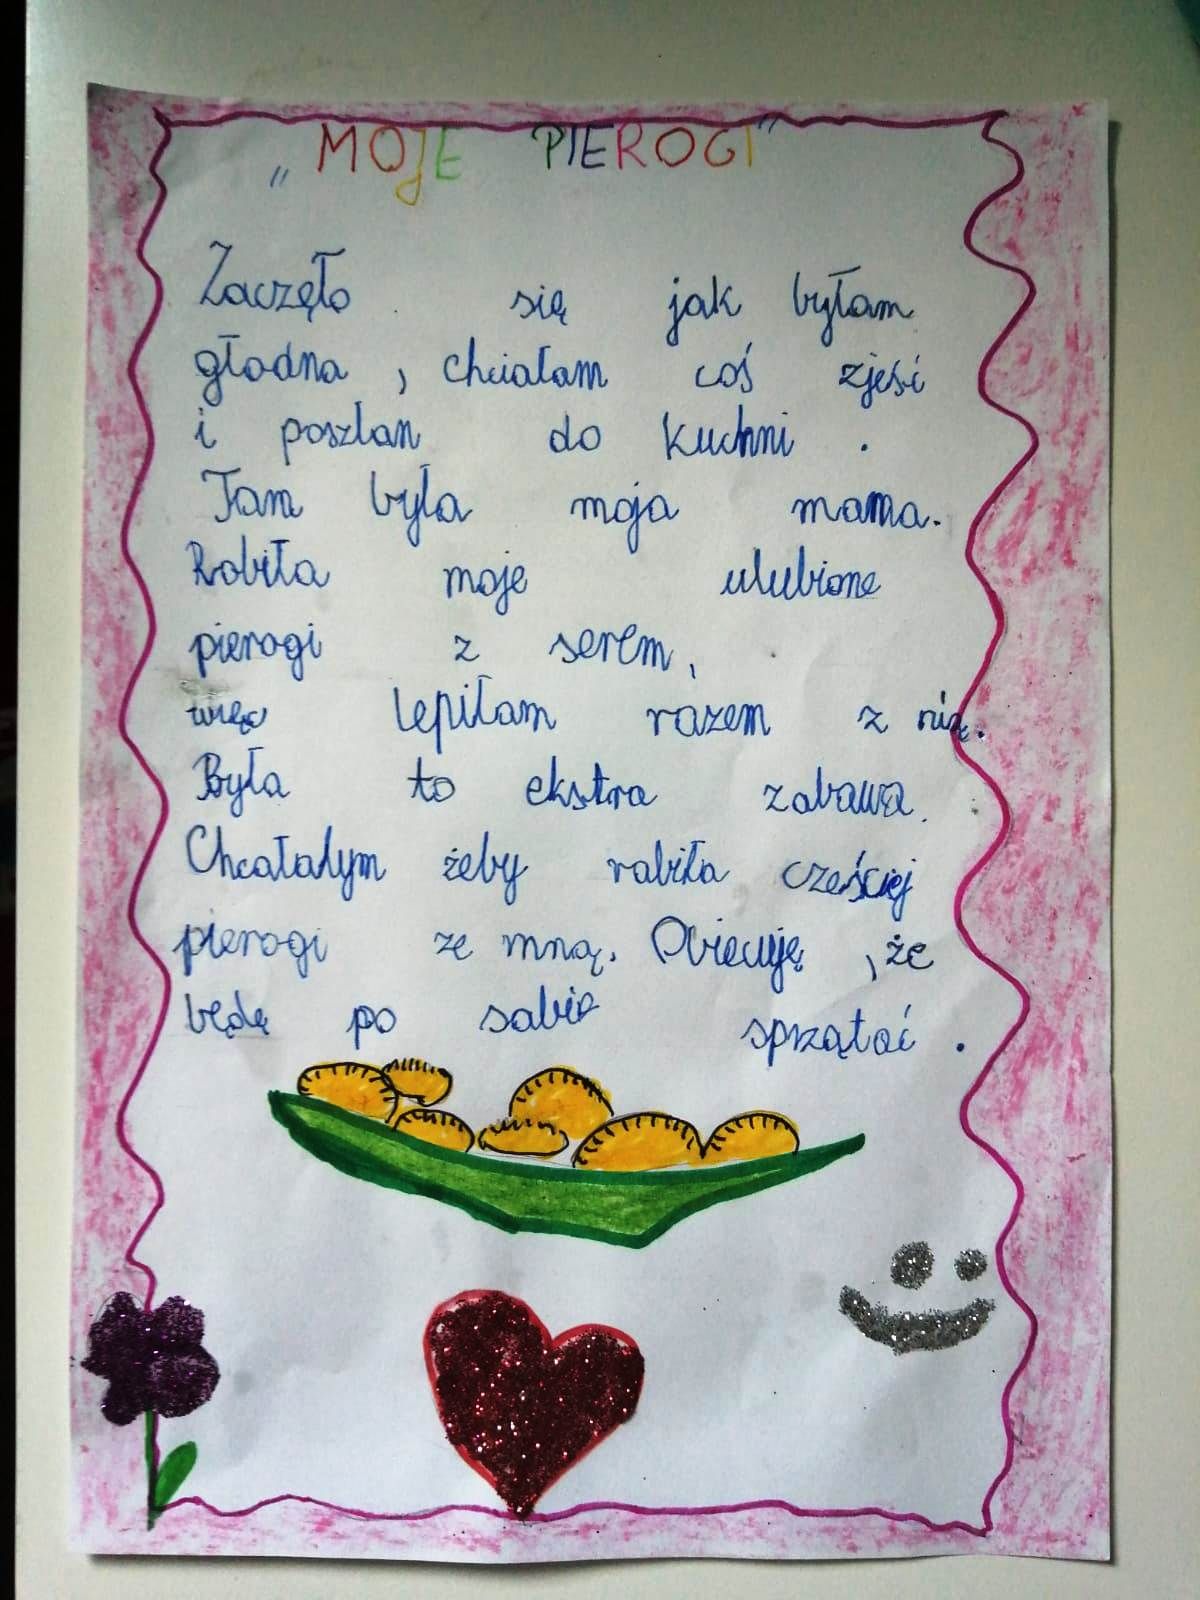 „MOJE PIEROGI"
Zaczęło się jak byłam
głodna, chciałam coś zjeść
i poszłam do kuchni.
Tam była moja mama.
Robiła moje ulubione
pierogi z serem,
więc lepiłam razem z nią.
Była to ekstra zabawa.
Chcałabym żeby robiła cześciej
pierogi ze mną. Obiecuję, że
będę po sobie sprzątać.